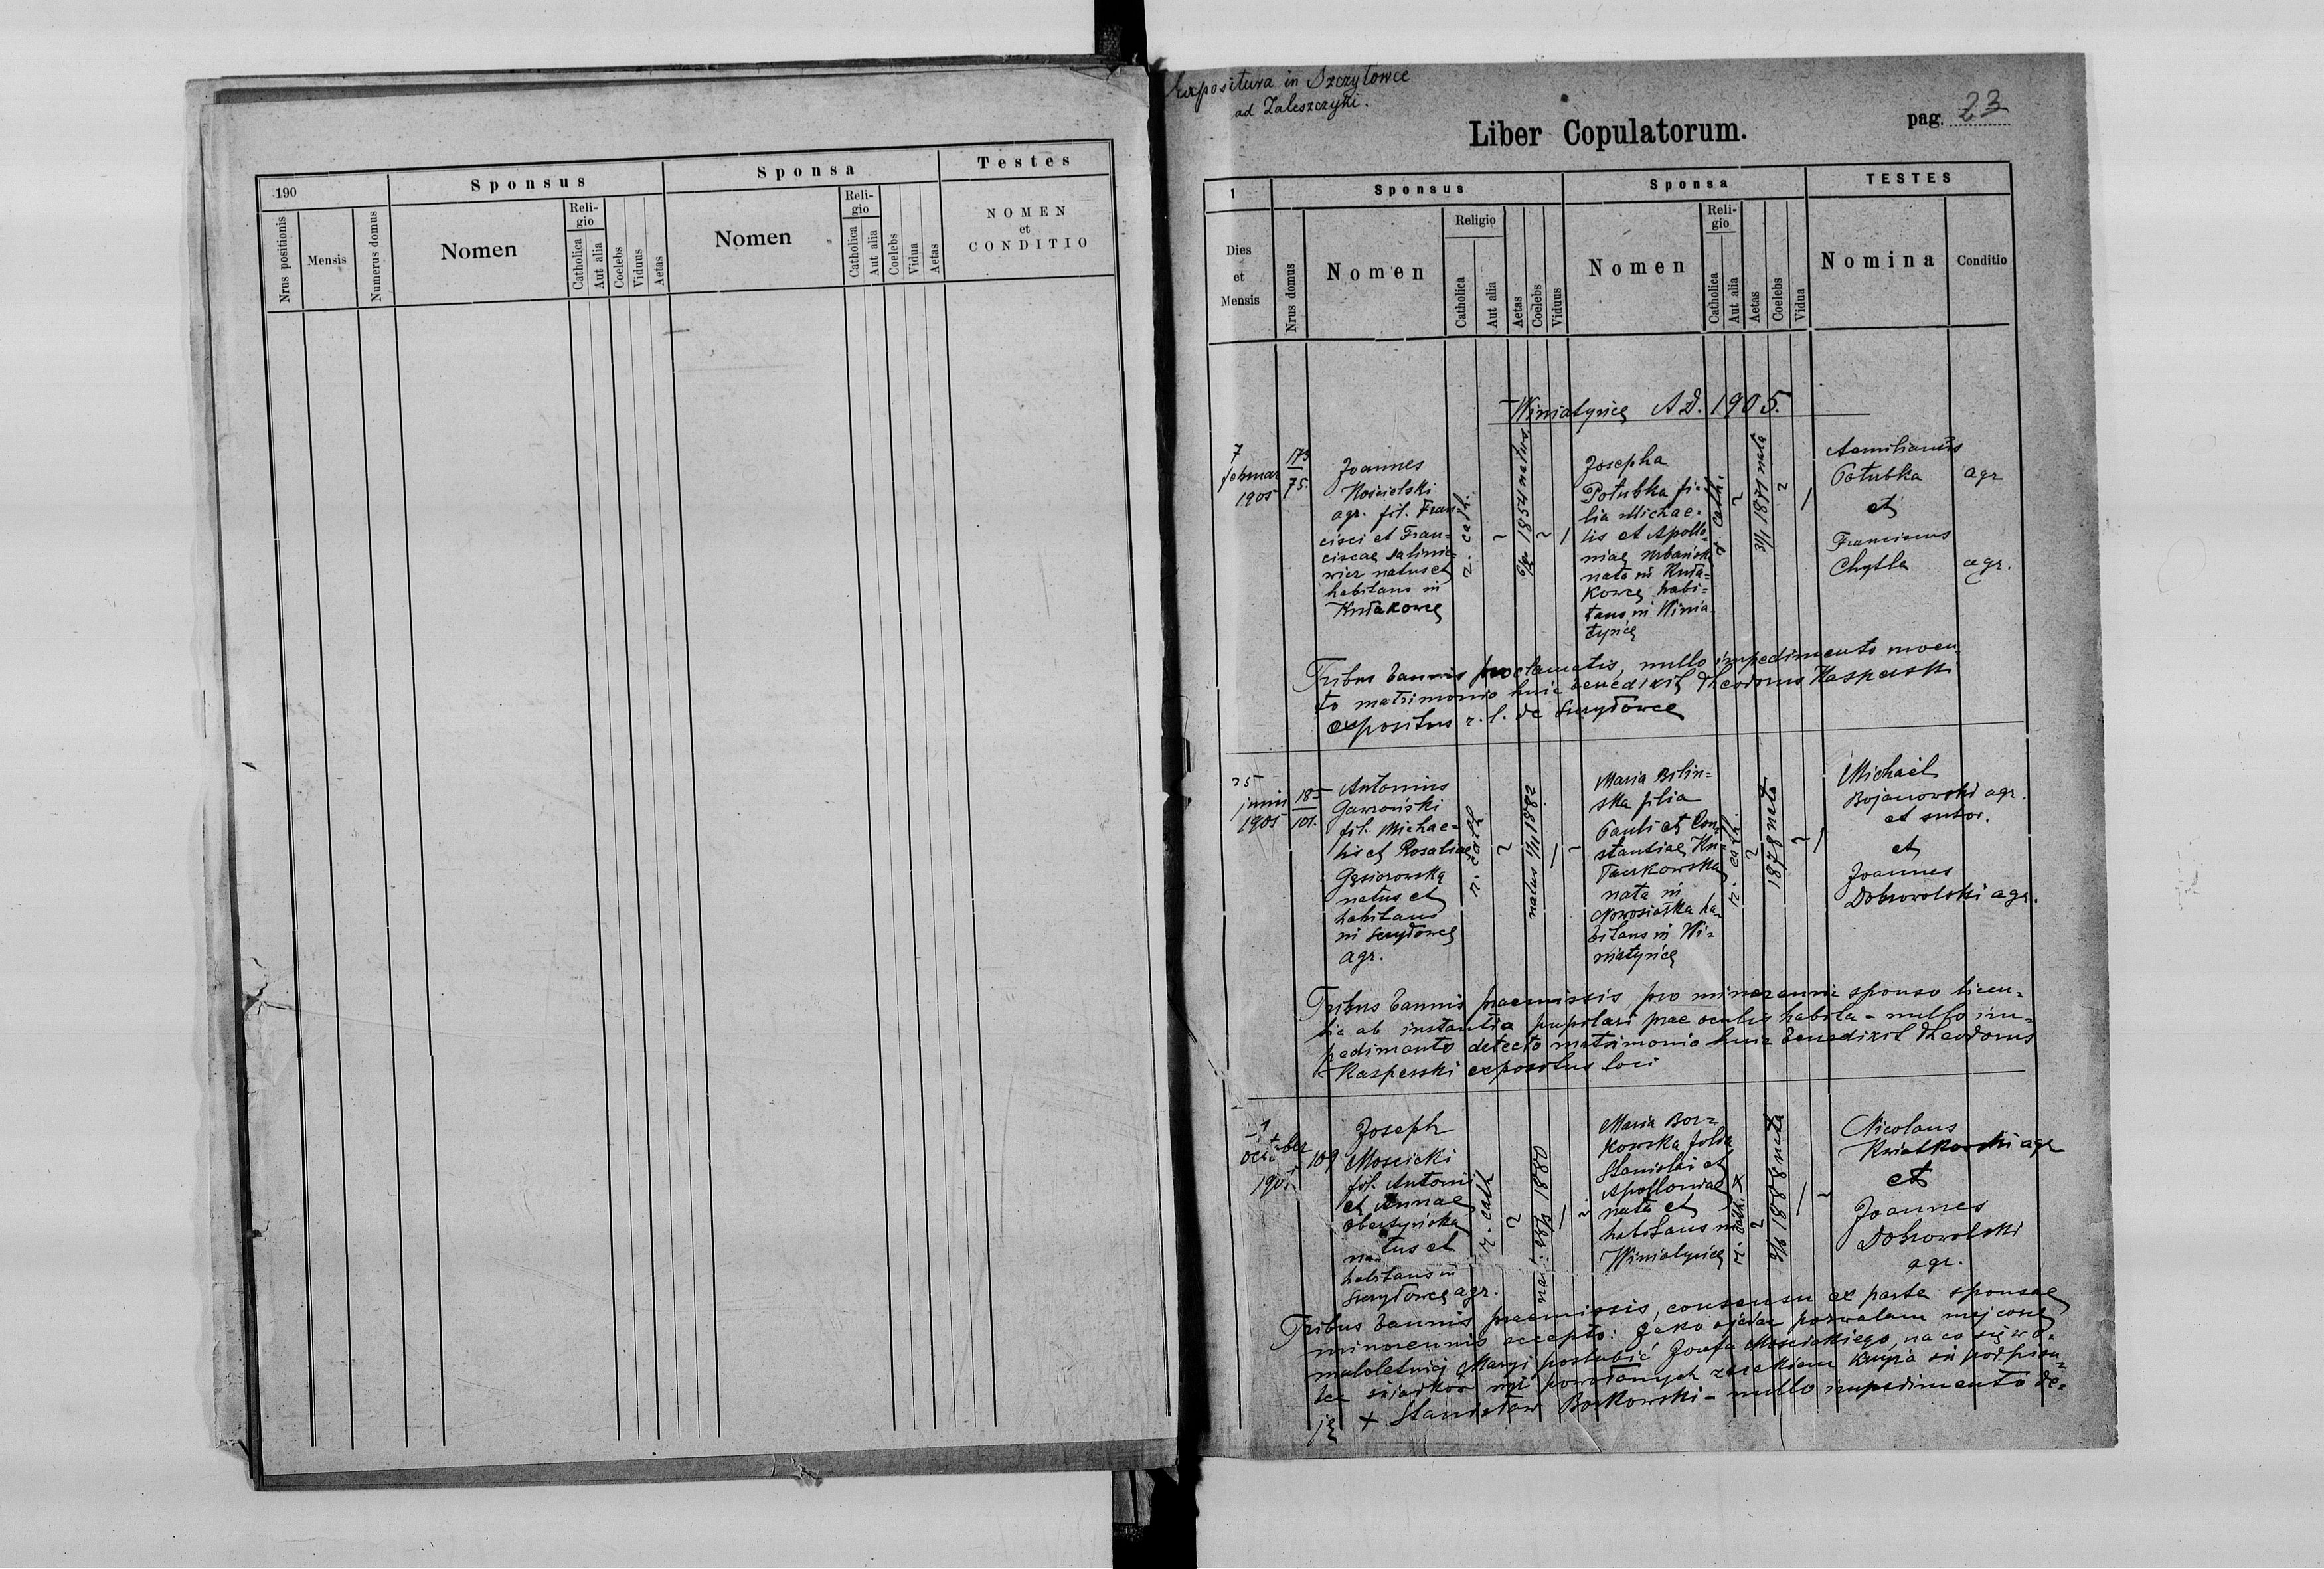 190
Sponsus
Sponsa
Testes
Nrus positionis
Mensis
Numerus domus
Nomen
Reli-
gio
Catholica
Aut alia
Coelebs
Viduus
Aetas
Nomen
Reli-
gio
Catholica
Aut alia
Coelebs
Vidua
Aetas
NOMEN
et
CONDITIO
Expositura in Szczytowce
ad Zaleszczyki.
Liber Copulatorum.
pag. 23
1
Sponsus
Sponsa
TESTES
Dies
et
Mensis
Nrus domus
Nomen
Religio
Catholica
Aut alia
Aetas
Coelebs
Viduus
Nomen
Reli-
gio
Catholica
Aut alia
Aetas
Coelebs
Vidua
Nomina
Conditio
Winiatyńce A.D. 1905.
7
februar
1905
173
75.
Joannes
Kościelski
agr. fil. Fran-
cisci et Fran-
ciscae
natus et
habitans in
Kułakowce
r. cath.
1854 natus
Josepha
Połubka fi-
lia Michae-
lis et Apollo-
niae Urbańska
nata in Kuła-
kowce habi-
tans in Winia-
tyńce
r. cath.
3/1 1871 nata
Aemilianus
Połubka agr
et
Franciscus
Chytla agr.
Tribus bannis proclamatis, nullo impedimento moven-
to matrimonio huic benedixit Theodorus Kasperski
expositus r. l. de Szczytowce
25
junii
1905
185
101.
Antonius
Gawroński
fil. Michae-
lis et Rosaliae
Gąsiorowska
natus et
habitans
in Szczytowce
agr.
r. cath
natus 1/11 1882
Maria Bilin-
ska filia
Pauli et Con-
stantiae
nata in
Nowosiołka ha-
bitans in Wi-
niatyńce
r. cath.
1878 nata
Michael
Bojanowski agr.
et sutor.
et
Joannes
Dobrowolski agr.
Tribus bannis praemissis, pro minorenni sponso licen-
tia ab instantia pupilari prae oculis habita - nullo im-
pedimento detecto matrimonio huic benedixit Theodorus
Kasperski expositus loci
October
1905
109
Joseph
Moscicki
fil. Antoni
et Annae
Obertyńska
natus et
habitans in
Szczytowce agr.
r. cath
1880
Maria Bor-
kowska filia
Stanislai et
Apolloniae
nata et
habitans in
Winiatyńce
r. cath.
1888 nata
Nicolaus
Kwiatkowski agr
et
Joannes
Dobrowolski
agr.
Tribus bannis praemissis, consensu ex parte sponsae
minorennis accepto: Jako ojciec pozwalam mej córce
małoletniej Maryi poślubić Józefa Moscickiego, na co się w o-
bec świadków niżej powołanych znakiem krzyża św podpisu-
ję + Stanisław Borkowski - nullo impedimento de-